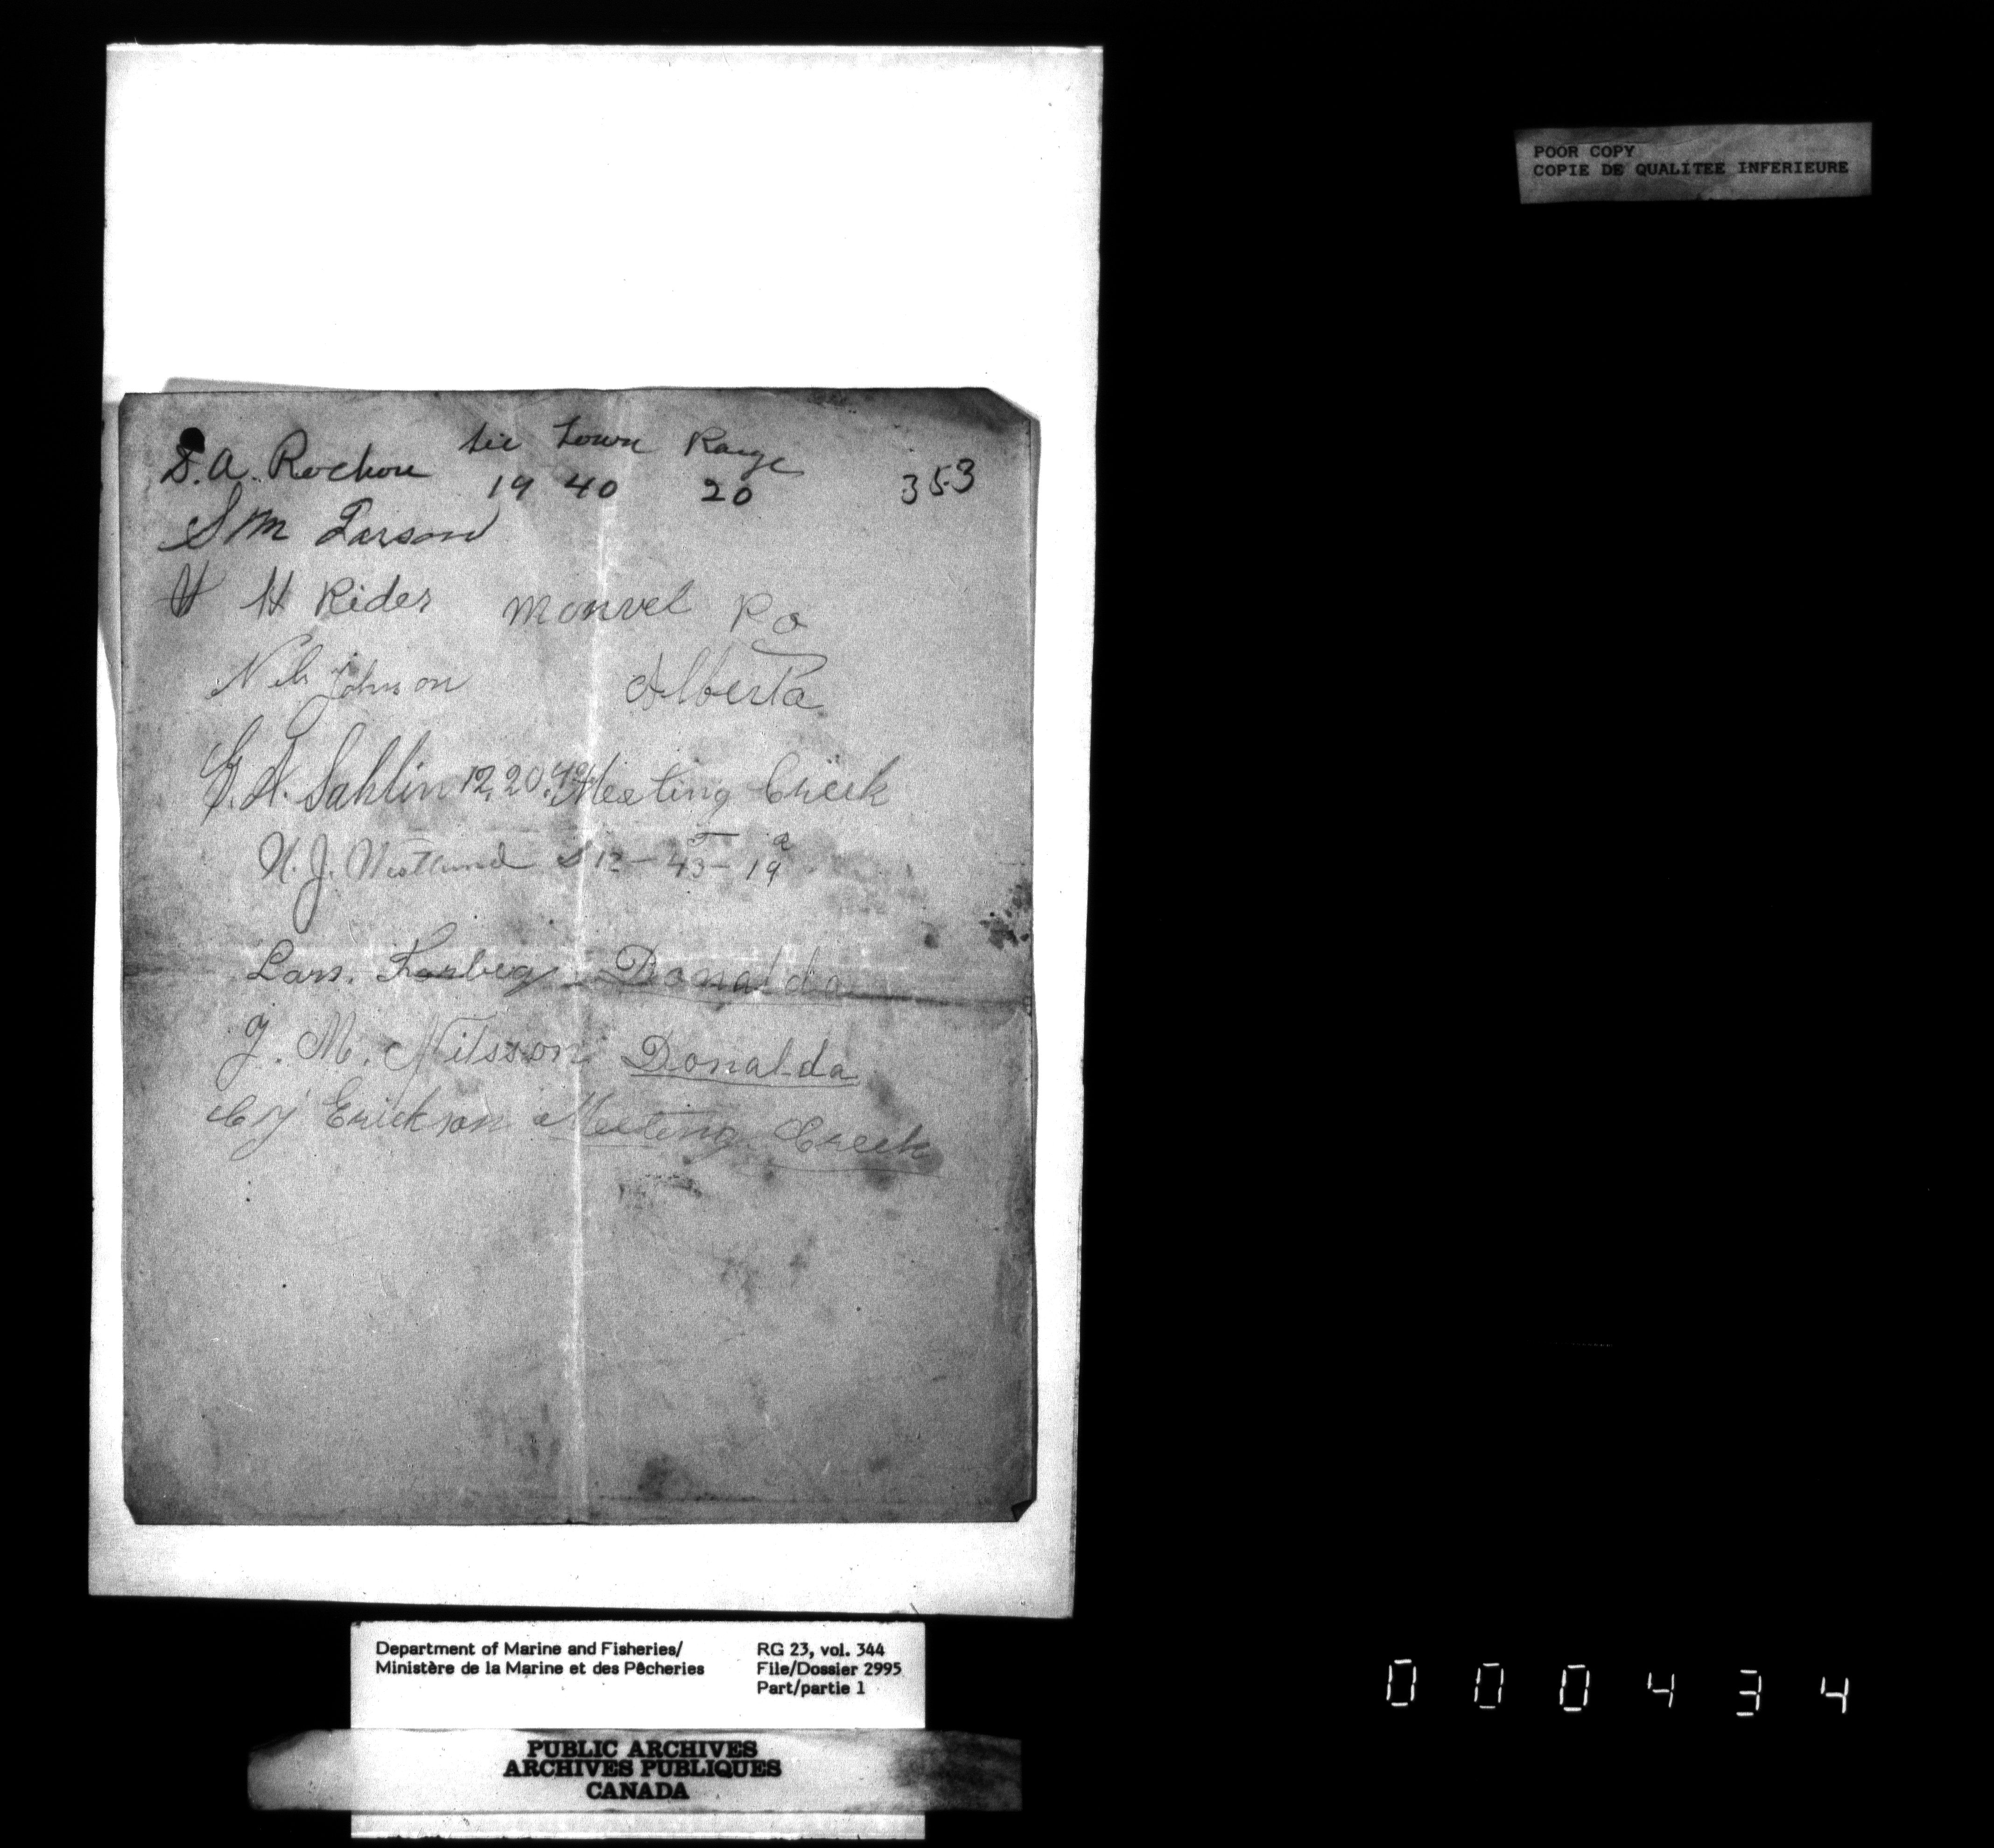 POOR COPY
COPIE DE QUALITEE INFERIEURE
Sec Town Range
D.A. Rochon 19 40 20 353
S M Larson
H H Rider Monvel P o
Nils Johnson Alberta
G. A. Sahlin 12, 20, 42 Meeting Creek
N. J. Westlund S 12 - 43 - 19
Lars. Donalda
J. M. Nilsson Donalda
C J Erickson Meeting Creek
Department of Marine and Fisheries/ RG 23, vol. 344
Ministère de la Marine et des Pêcheries File/Dossier 2995
Part/partie 1
PUBLIC ARCHIVES
ARCHIVES PUBLIQUES
CANADA
000434